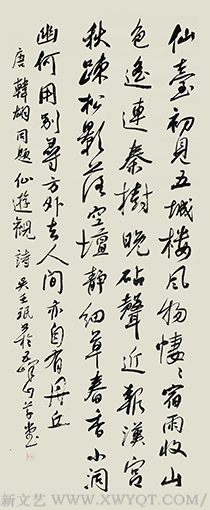 仙台初見五城樓風物悽〻宿雨收山
色遙連秦樹晚砧聲近報漢宮
秋踈松影落空壇靜細草春香小洞
幽何用別尋方外去人間亦自有丹丘
唐韓翃同題仙遊觀詩吴玉珉
新文艺／WWW.XWYQT.COM/